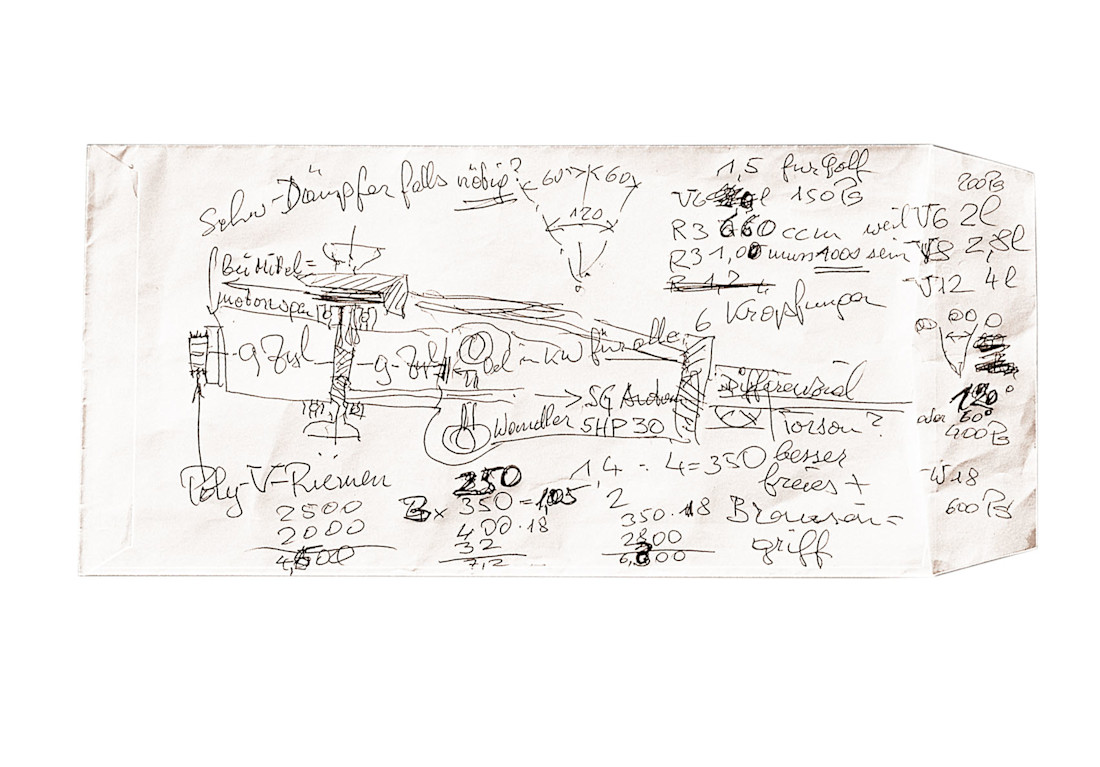 Schw-Dämpfer falls nötig?
60° 60
120
1,5 für Golf
V6 l 150 PS
R3 660 ccm weil
R3 1,00 muss 1000 sein
R 1,2
6 Kröpfungen
200 PS
V6 2l
V8 2,8l
V12 4l
120°
oder 60°
400 PS
W18
600 PS
Bei Mittel=
motorspei
9 Zyl
9 Zyl
Oel in KW für alle
→ SG Antr
Wandler 5HP30
Differenzial
Torson?
Poly-V-Riemen
2500
2000
4,500
250
350 =
400 · 18
32
7,2
1,4 : 4 = 350
2
350 · 18
2800
6,300
besser
freies +
Bremsen=
griff